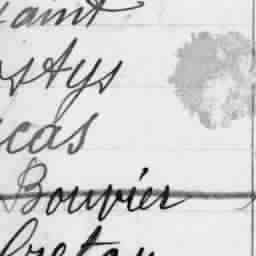 aint
stys
cas
Bouvier
Cretau